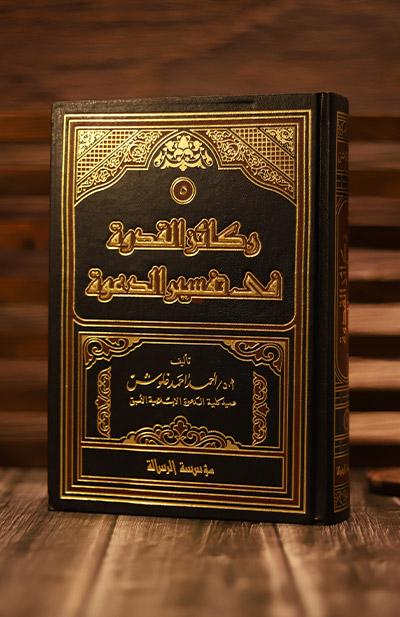 ٥
ركائز القدوة
فى تفسير الدعوة
تأليف
أ.د/أحمد أحمد غلوش
عميد كلية الدعوة الإسلامية الأسبق
مؤسسة الرسالة